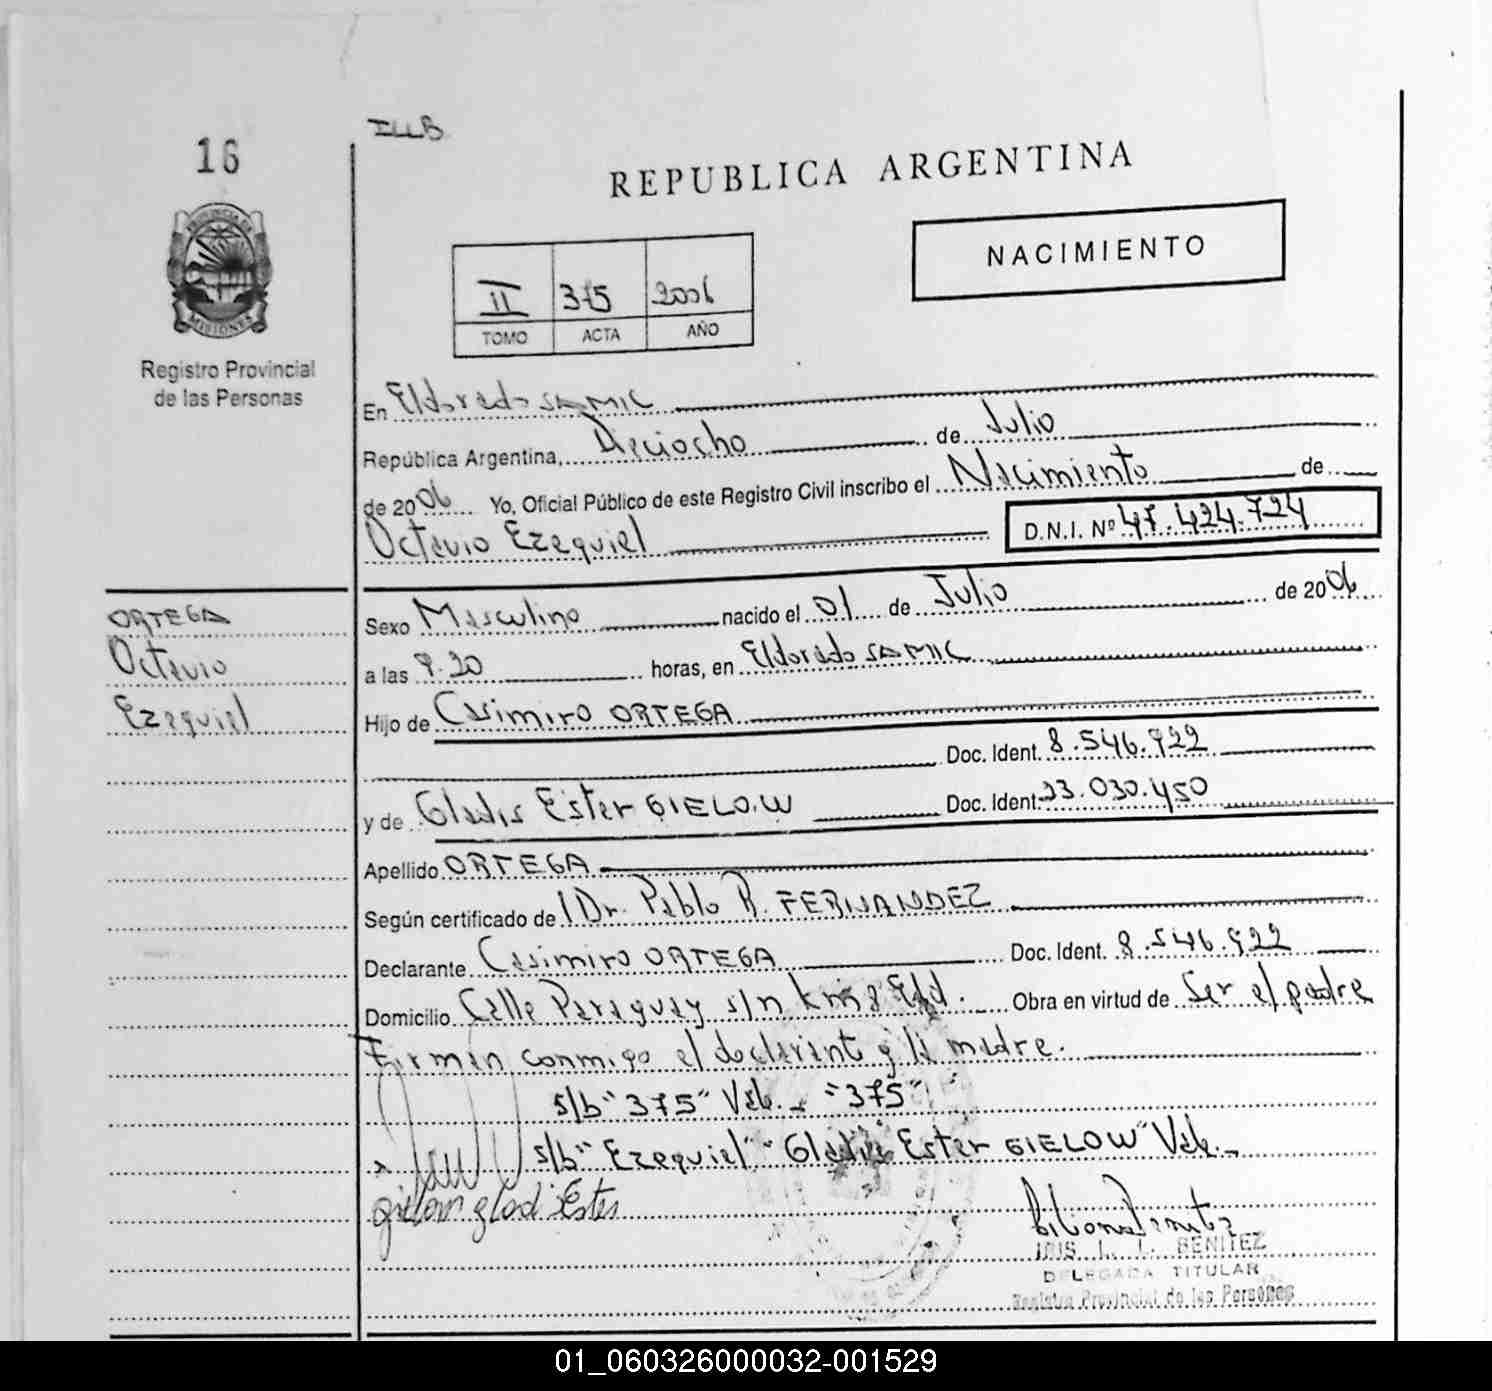 16
REPUBLICA ARGENTINA
NACIMIENTO
II 375 2006
TOMO ACTA AÑO
PROVINCIA DE
MISIONES
Registro Provincial
de las Personas
En Eldorado SAMIC
República Argentina, Dieciocho de Julio
de 2006 Yo, Oficial Público de este Registro Civil inscribo el Nacimiento de
Octavio Ezequiel D.N.I. Nº 47.424.724
ORTEGA
Octavio
Ezequiel
Sexo Masculino nacido el 01 de Julio de 2006
a las 9.20 horas, en Eldorado SAMIC
Hijo de Casimiro ORTEGA
Doc. Ident. 8.546.922
y de Gladis Ester GIELOW Doc. Ident. 23.030.450
Apellido ORTEGA
Según certificado de Dr. Pablo R. FERNANDEZ
Declarante Casimiro ORTEGA Doc. Ident. 8.546.922
Domicilio Calle Paraguay s/n km 8 Eldd. Obra en virtud de Ser el padre
Firman conmigo el declarante y la madre.
s/b "375" Vale. "375"
s/b "Ezequiel" "Gladis Ester GIELOW" Vale.
gielow gladi Ester
IRIS L. BENITEZ
DELEGADA TITULAR
Registro Provincial de las Personas
01_060326000032-001529